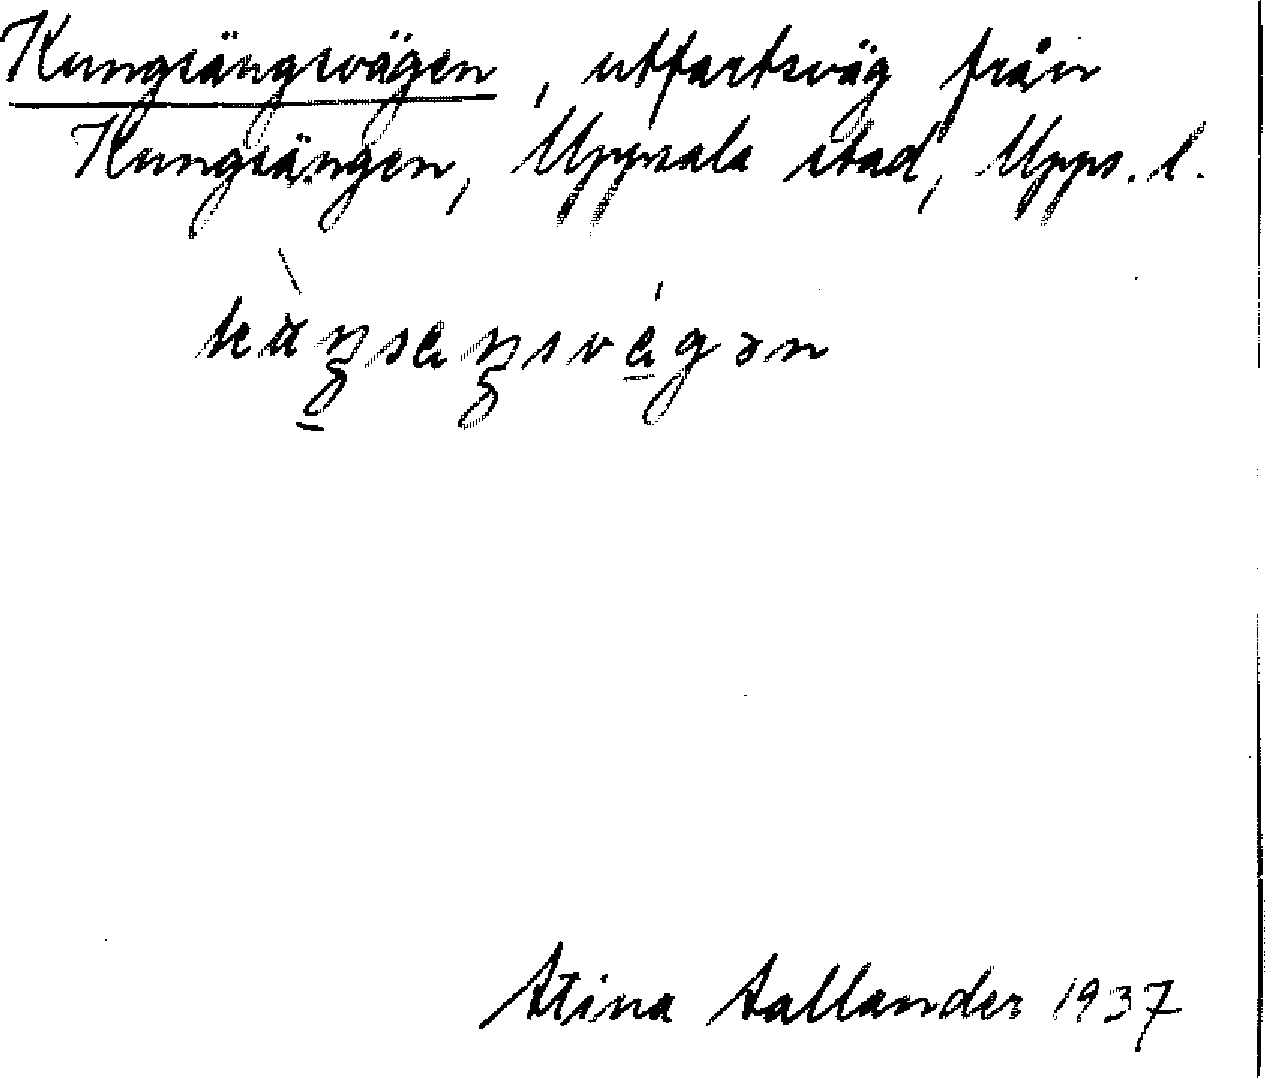 Kungsängsvägen, utfartsväg från
Kungsängen, Uppsala stad, Upps. l.
Stina Sallander 1937